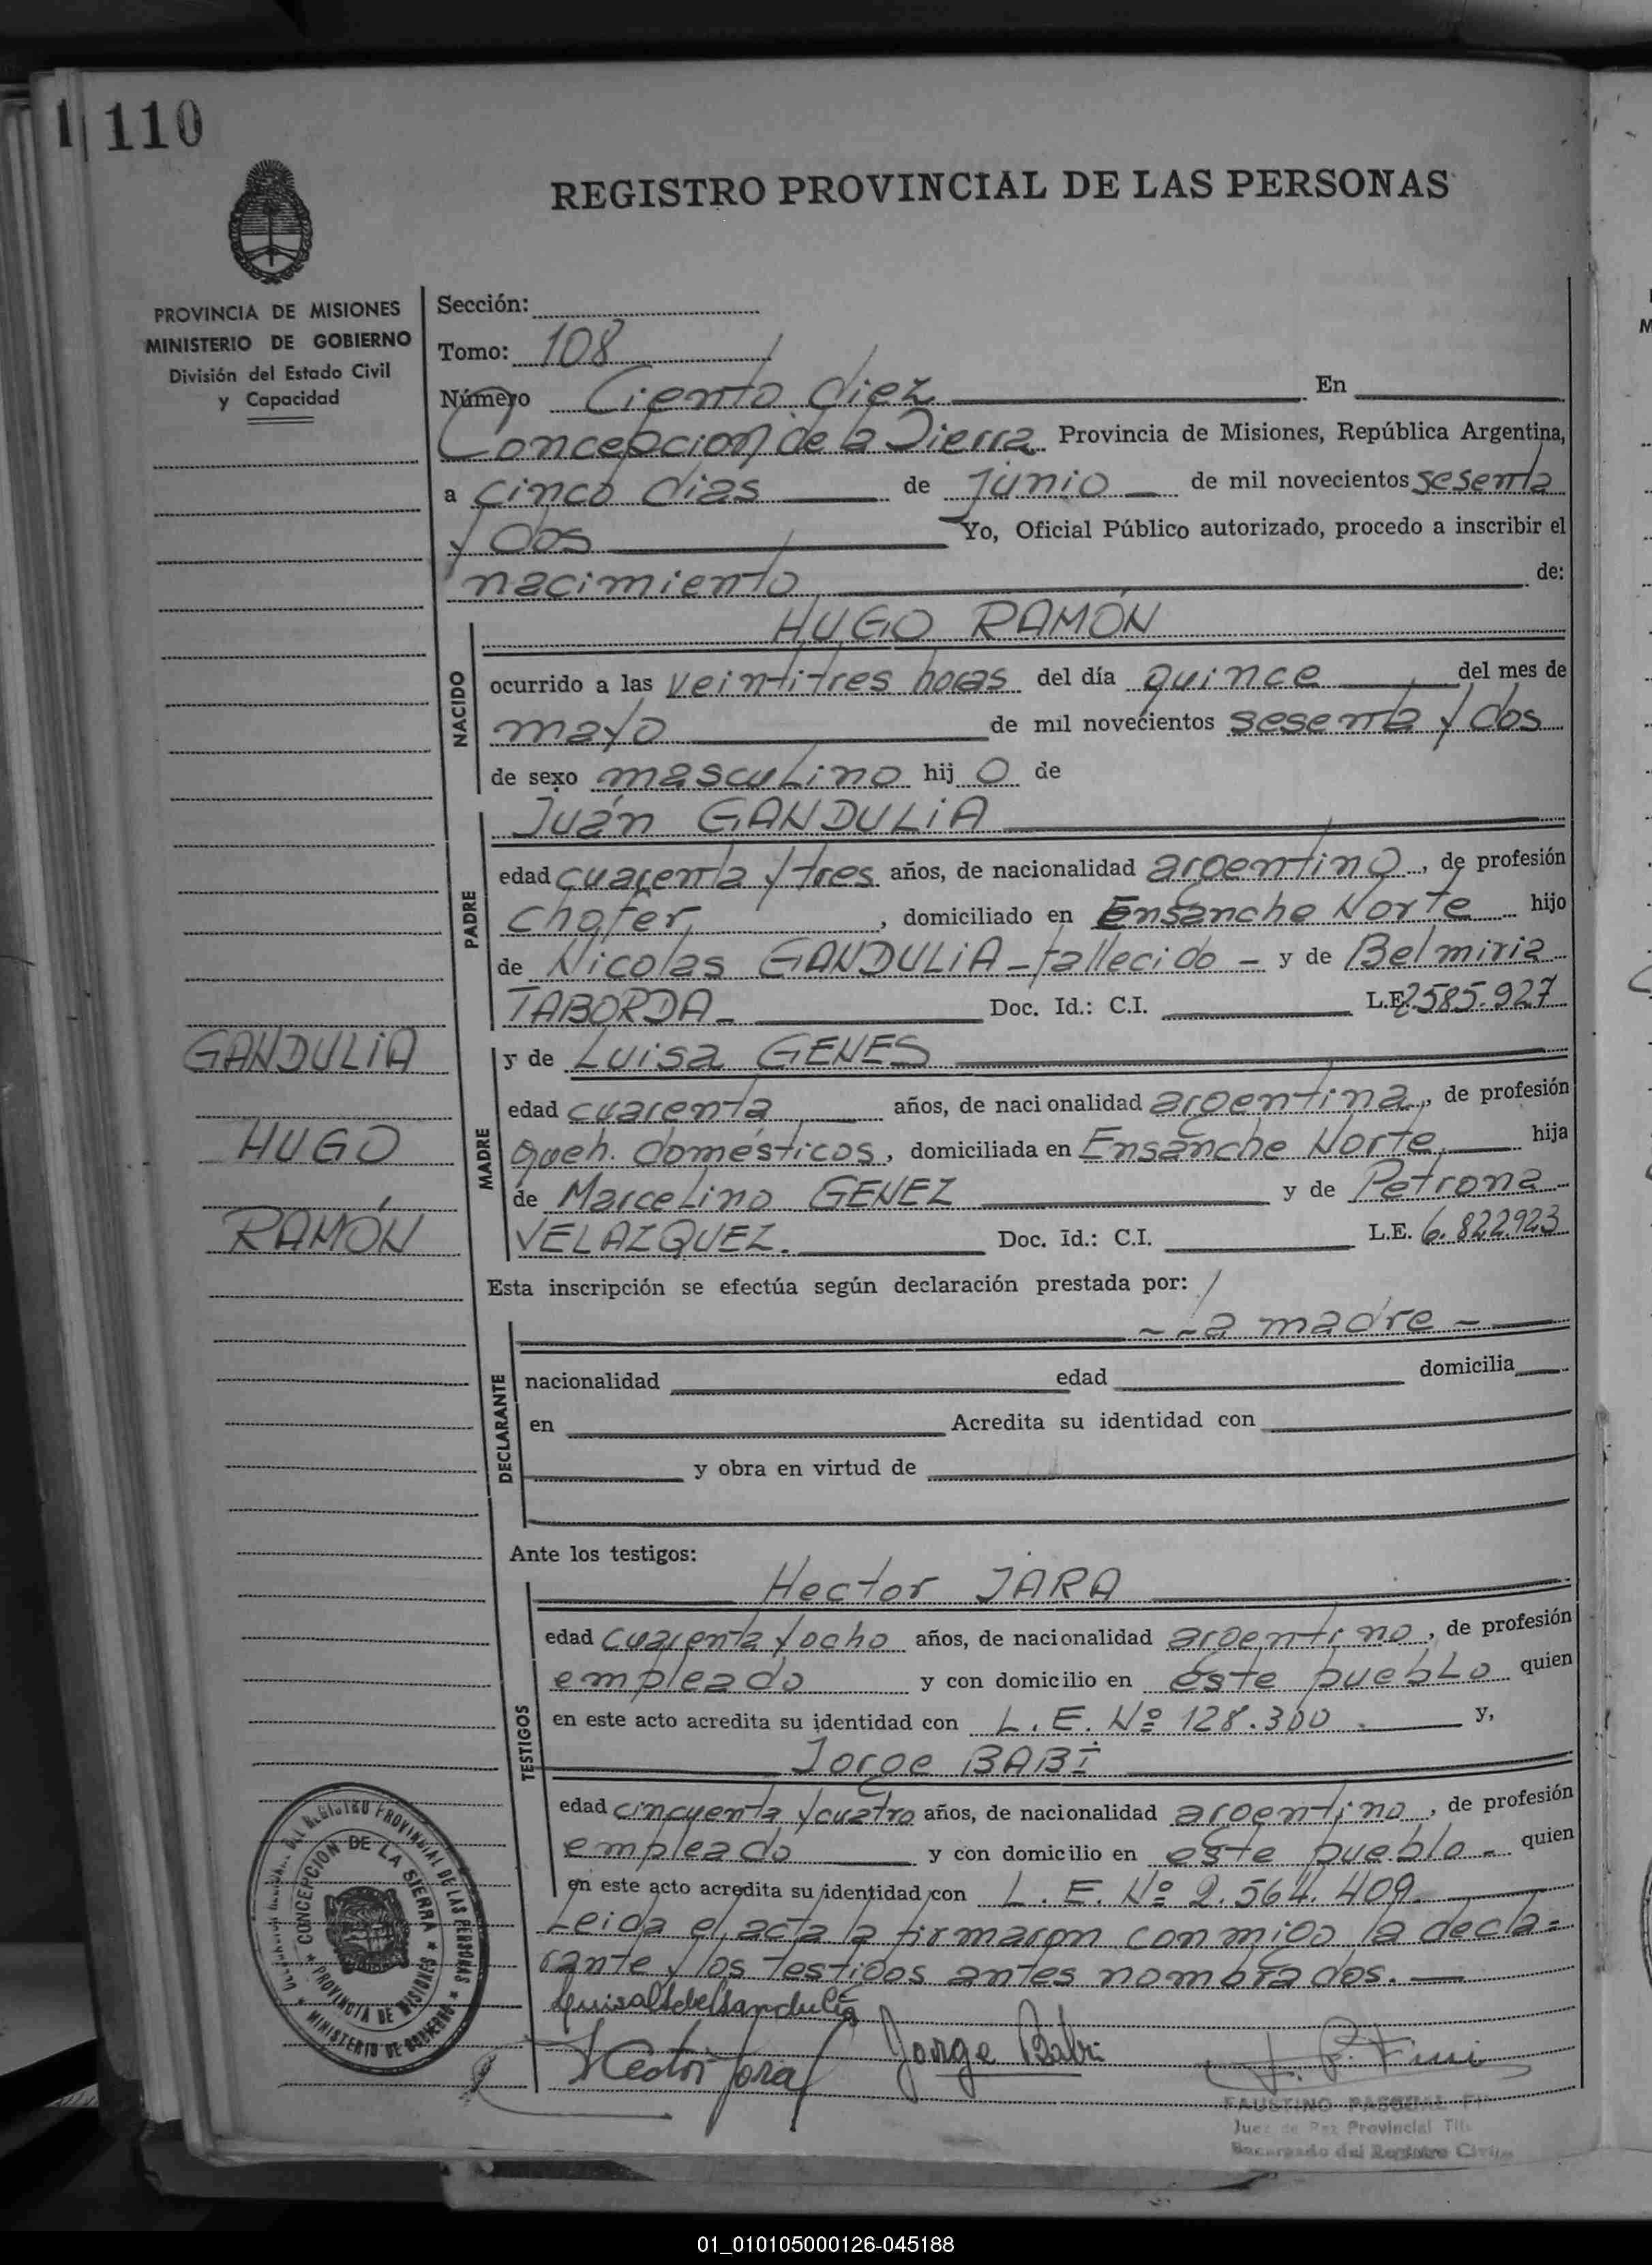 1 110
REGISTRO PROVINCIAL DE LAS PERSONAS
PROVINCIA DE MISIONES
MINISTERIO DE GOBIERNO
División del Estado Civil
y Capacidad
Sección:
Tomo: 108
Número Ciento diez En
Concepcion de la Sierra Provincia de Misiones, República Argentina,
a cinco dias de junio de mil novecientos sesenta
y dos Yo, Oficial Público autorizado, procedo a inscribir el
nacimiento de:
HUGO RAMÓN
NACIDO
ocurrido a las veintitres horas del día quince del mes de
mayo de mil novecientos sesenta y dos
de sexo masculino hijo de
Juán GANDULIA
PADRE
edad cuarenta y tres años, de nacionalidad argentino, de profesión
chofer, domiciliado en Ensanche Norte hijo
de Nicolas GANDULIA - fallecido - y de Belmiria
TABORDA - Doc. Id.: C.I. L.E. 2.585.927
GANDULIA
HUGO
RAMÓN
y de Luisa GENES
MADRE
edad cuarenta años, de nacionalidad argentina, de profesión
queh. domésticos, domiciliada en Ensanche Norte, hija
de Marcelino GENEZ y de Petrona
VELAZQUEZ. Doc. Id.: C.I. L.E. 6.822.923
Esta inscripción se efectúa según declaración prestada por:
- La madre -
DECLARANTE
nacionalidad edad domicilia
en Acredita su identidad con
y obra en virtud de
Ante los testigos:
Hector JARA
TESTIGOS
edad cuarenta y ocho años, de nacionalidad argentino, de profesión
empleado y con domicilio en éste pueblo quien
en este acto acredita su identidad con L. E. Nº 128.300 y,
Jorge BABI
edad cincuenta y cuatro años, de nacionalidad argentino, de profesión
empleado y con domicilio en éste pueblo - quien
en este acto acredita su identidad con L. E. Nº 2.564.409.
Leida el acta la firmaron conmigo la decla=
rante y los testigos antes nombrados.
Hector Jara Jorge Babi F. P. Fini
DEL REGISTRO PROVINCIAL DE LAS PERSONAS
CONCEPCION DE LA SIERRA
PROVINCIA DE MISIONES
MINISTERIO DE GOBIERNO
FAUSTINO PASCUAL
Juez de Paz Provincial
Encargado del Registro Civil
01_010105000126-045188